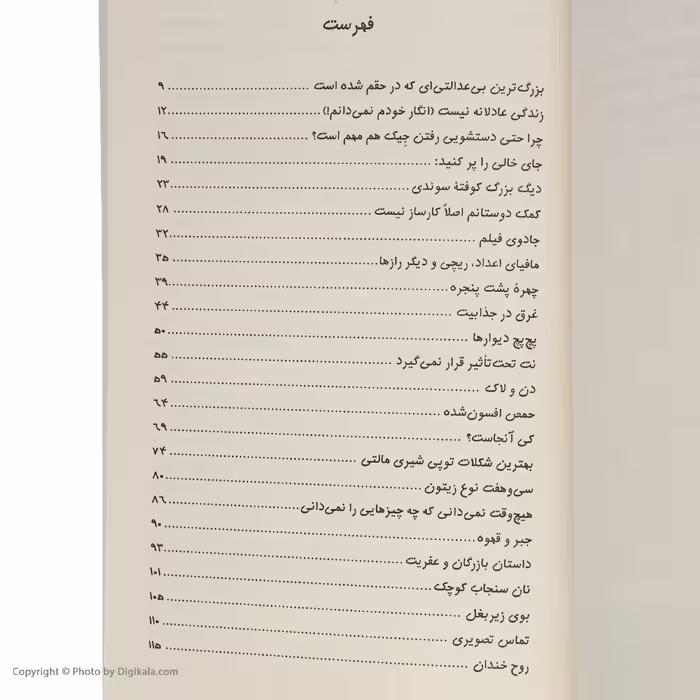 فهرست
بزرگ‌ترین بی‌عدالتی‌ای که در حقم شده است ................................ ۹
زندگی عادلانه نیست (انگار خودم نمی‌دانم!) ................................ ۱۲
چرا حتی دستشویی رفتن جیک هم مهم است؟ ................................ ۱۶
جای خالی را پر کنید: ................................ ۱۹
دیگ بزرگ کوفتهٔ سوئدی ................................ ۲۳
کمک دوستانم اصلاً کارساز نیست ................................ ۲۸
جادوی فیلم ................................ ۳۲
مافیای اعداد، ریچی و دیگر رازها ................................ ۳۵
چهرهٔ پشت پنجره ................................ ۳۹
غرق در جذابیت ................................ ۴۴
پچ‌پچ دیوارها ................................ ۵۰
نت تحت‌تأثیر قرار نمی‌گیرد ................................ ۵۵
دن و لاک ................................ ۵۹
حمص افسون‌شده ................................ ۶۴
کی آنجاست؟ ................................ ۶۹
بهترین شکلات توپی شیری مالتی ................................ ۷۴
سی‌وهفت نوع زیتون ................................ ۸۰
هیچ‌وقت نمی‌دانی که چه چیزهایی را نمی‌دانی ................................ ۸۶
جبر و قهوه ................................ ۹۰
داستان بازرگان و عفریت ................................ ۹۳
نان سنجاب کوچک ................................ ۱۰۱
بوی زیربغل ................................ ۱۰۵
تماس تصویری ................................ ۱۱۰
روح خندان ................................ ۱۱۵
Copyright © Photo by Digikala.com